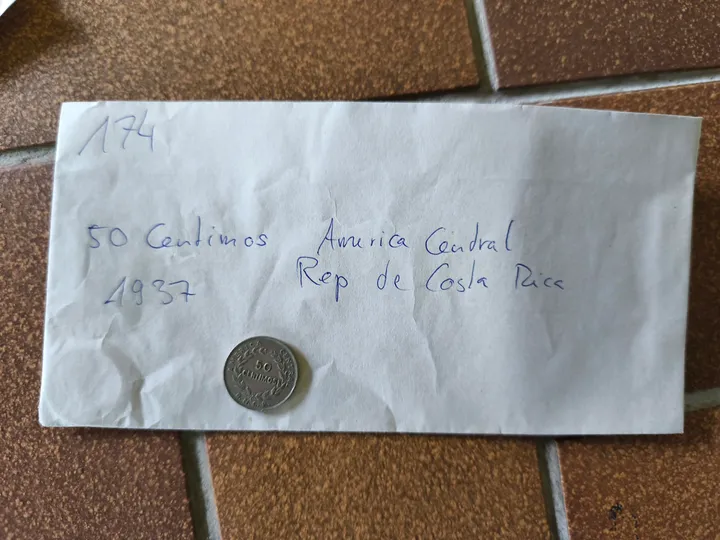 174
50 Centimos America Central
1937 Rep de Costa Rica
50
CENTIMOS